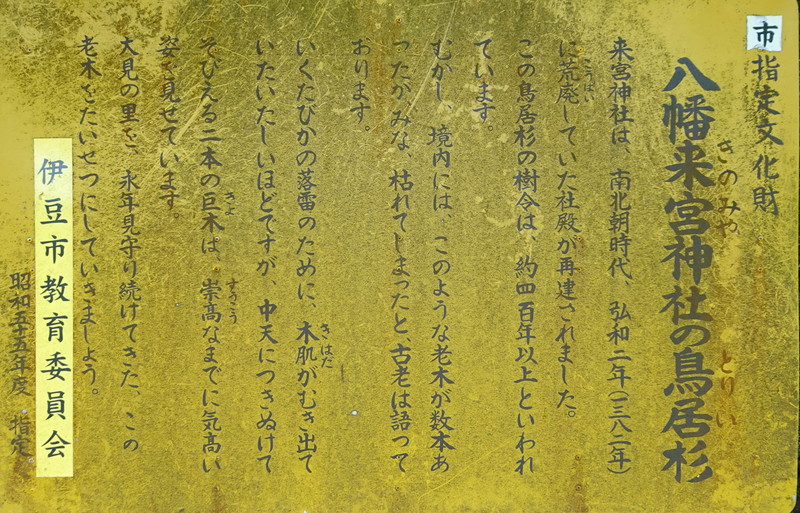 市指定文化財
八幡来宮神社の鳥居杉
きのみや
とりい
来宮神社は、南北朝時代、弘和二年(一三八二年)
に荒廃していた社殿が再建されました。
こうはい
この鳥居杉の樹令は、約四百年以上といわれ
ています。
むかし、境内には、このような老木が数本あ
ったがみな、枯れてしまったと、古老は語って
おります。
いくたびかの落雷のために、木肌がむき出て
きはだ
いたいたしいほどですが、中天につきぬけて
そびえる二本の巨木は、崇高なまでに気高い
きよ
すうこう
姿を見せています。
大見の里を、永年見守り続けてきた、この
老木をたいせつにしていきましょう。
伊豆市教育委員会
昭和五十五年度 指定